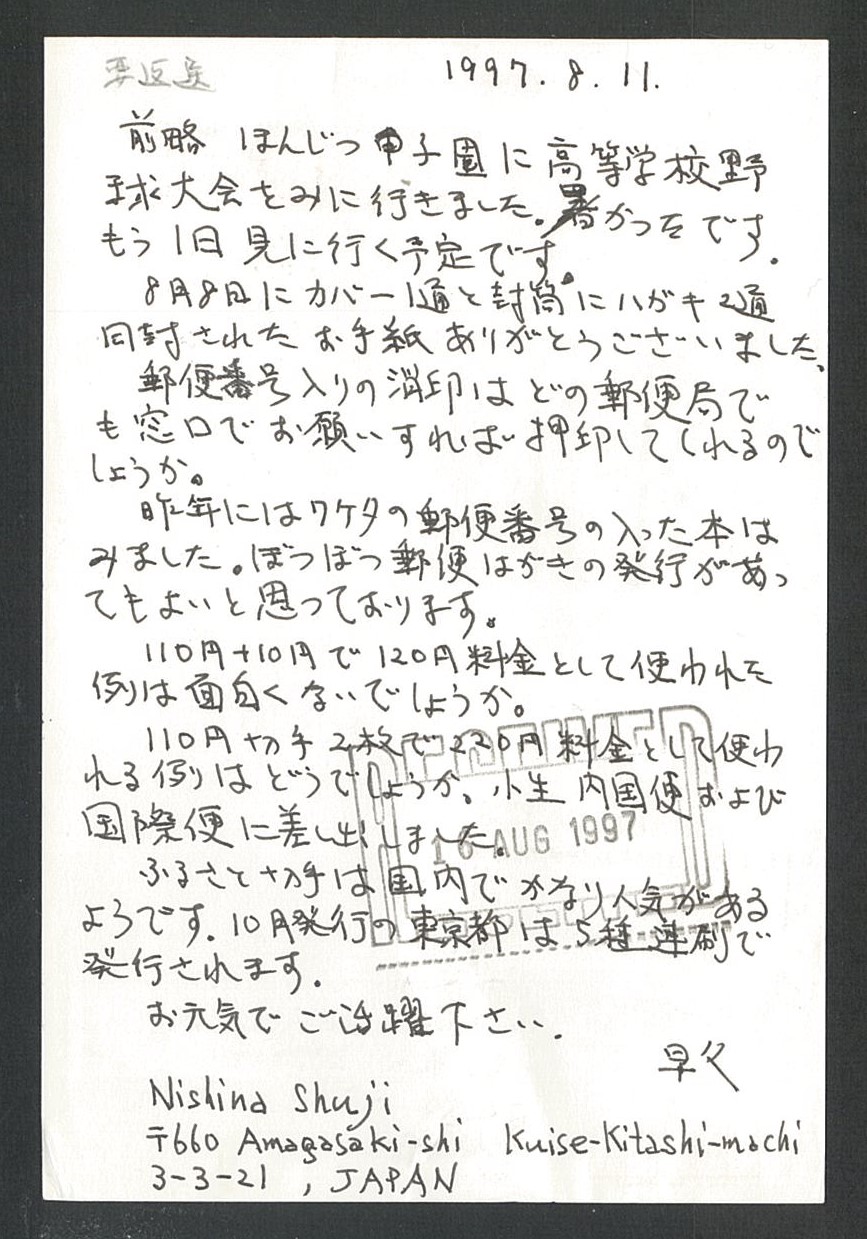 要返送
1997. 8. 11.
前略 ほんじつ 甲子園に 高等学校野
球大会をみに行きました。暑かったです.
もう1日 見に行く予定です。
8月8日に カバー1通と封筒にハガキ2通
同封された お手紙 ありがとうございました。
郵便番号入りの消印は どの郵便局で
も窓口で お願いすれば 押印してくれるので
しょうか。
昨年にはワケタの郵便番号の入った本は
みました。ぼつぼつ郵便はがきの発行があっ
てもよいと思っております。
110円+10円で 120円料金として使われた
例は面白くないでしょうか。
110円切手2枚で 220円 料金として使わ
れる例はどうでしょうか。小生 内国便および
国際便に差し出しました。
ふるさと切手は国内で かなり人気がある
ようです. 10月発行の東京都は5種連刷で
発行されます.
お元気で ご活躍下さい.
早々
Nishina Shuji
〒660 Amagasaki-shi Kuise-Kitashi-machi
3-3-21 , JAPAN
16 AUG 1997